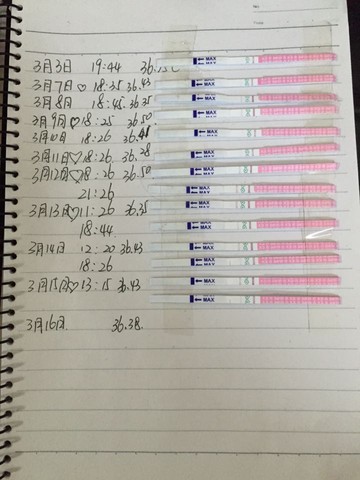 3月3日 19:44 MAX
3月7日♡18:35 36.43 MAX
3月8日 18:45 36.35 MAX
3月9日♡18:25 36.50 MAX
3月10日 18:26 MAX
3月11日♡18:26 36.28 MAX
3月12日♡18:26 36.50 MAX
21:26 MAX
3月13日♡11:26 36.35 MAX
18:44 MAX
3月14日 12:20 36.43 MAX
18:26 MAX
3月15日♡13:15 36.43 MAX
MAX
3月16日 36.38.